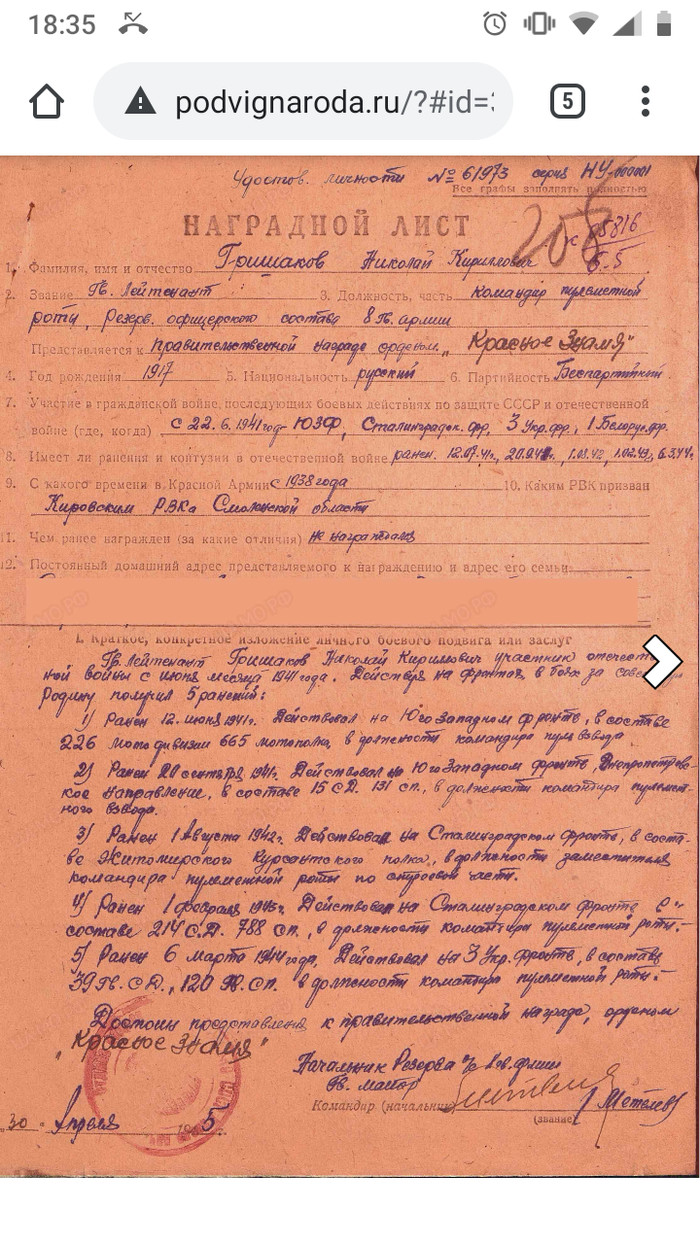 18:35
podvignaroda.ru/?#id=
5
Удостов. личности № 61973 серия НУ-000001
Все графы заполнять полностью
НАГРАДНОЙ ЛИСТ
1. Фамилия, имя и отчество Гришаков Николай Кириллович
2. Звание Гв. Лейтенант 3. Должность, часть командир пулеметной
роты, Резерв. офицерского состава 8 Гв. армии
Представляется к правительственной награде орденом „Красное Знамя"
4. Год рождения 1917 5. Национальность русский 6. Партийность Беспартийный
7. Участие в гражданской войне, последующих боевых действиях по защите СССР и отечественной
войне (где, когда) с 22.6.1941год- ЮЗФ, Сталинградск. фр, 3 Укр.фр., 1 Белорус.фр.
8. Имеет ли ранения и контузии в отечественной войне ранен. 12.07.41г., 20.9.41г., 1.08.42, 1.02.43г, 6.3.44г.
9. С какого времени в Красной Армии с 1938 года 10. Каким РВК призван
Кировским РВКа Смоленской области
11. Чем ранее награжден (за какие отличия) не награждался
12. Постоянный домашний адрес представляемого к награждению и адрес его семьи
I. Краткое, конкретное изложение личного боевого подвига или заслуг
Гв. Лейтенант Гришаков Николай Кирилович участник отечест-
ной войны с июня месяца 1941 года. Действуя на фронтах в боях за
Родину получил 5 ранений:
1) Ранен 12. июня 1941г. Действовал на Юго Западном фронте, в составе
226 мото дивизии 665 мотополка, в должности командира пуль взвода
2) Ранен 20 сентября 1941г. Действовал на Юго Западном фронте, Днепропетровс-
кое направление, в составе 15 С.Д. 131 сп., в должности командира пулемет-
ного взвода.
3) Ранен 1 Августа 1942г. Действовал на Сталинградском фронте, в соста-
ве Житомирского Курсантского полка, в должности заместителя
командира пулеметной роты по строевой части.
4) Ранен 1 февраля 1943г. Действовал на Сталинградском фронте в
составе 214 С.Д. 788 сп., в должности командира пулеметной роты.-
5) Ранен 6 марта 1944 года, Действовал на 3 Укр. фронте, в составе
39 Гв. С.Д., 120 Гв. Сп. в должности командира пулеметной роты.-
Достоин представления к правительственной награде, орденом
„Красное Знамя"
Начальник Резерва
Гв. майор
Командир (начальник)
(звание)
„30" Апреля 1945